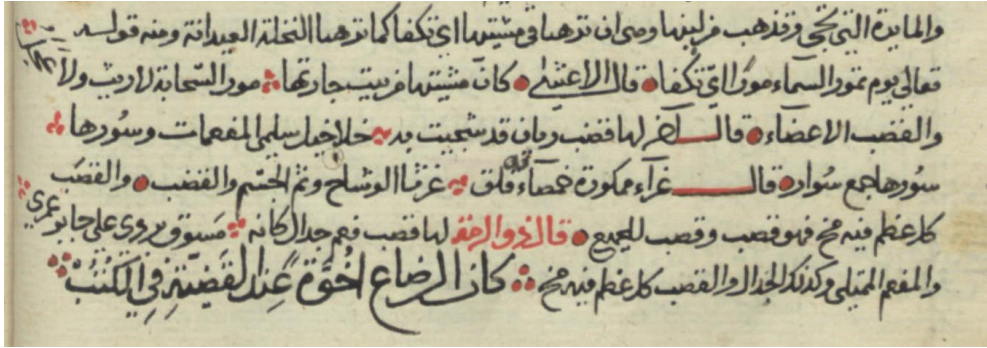 والمايدة التي تجي وتذهب من لينها ومن ان تذهبا في مشيتها اي تكفا كما تذهبا النخلة العيدانة ومنه قوله
تعالى يوم تمور السماء مورا اي تكفا قال الاعشى كان مشيتها من بيت جارتها مور السحابة لا ريث ولا عجل
والقضب الاعضاء قال اخر لها قصب ريان قد شجيت به خلاخيل سلمى المفعمات وسورها
سورها جمع سوار قال غراء ممكورة خمصانة قلق عنها الوشاح وتم الجسم والقصب والقصب
كل عظم فيه مخ فهو قصب وقصب للجميع قال ذو الرمة لها قصب فعم خدال كانه مسوق بردي على حاير غمر
والمفعم الممتلي وكذلك الخدال والقصب كل عظم فيه مخ كان الرضاع اخوة عند القضية في الكتب